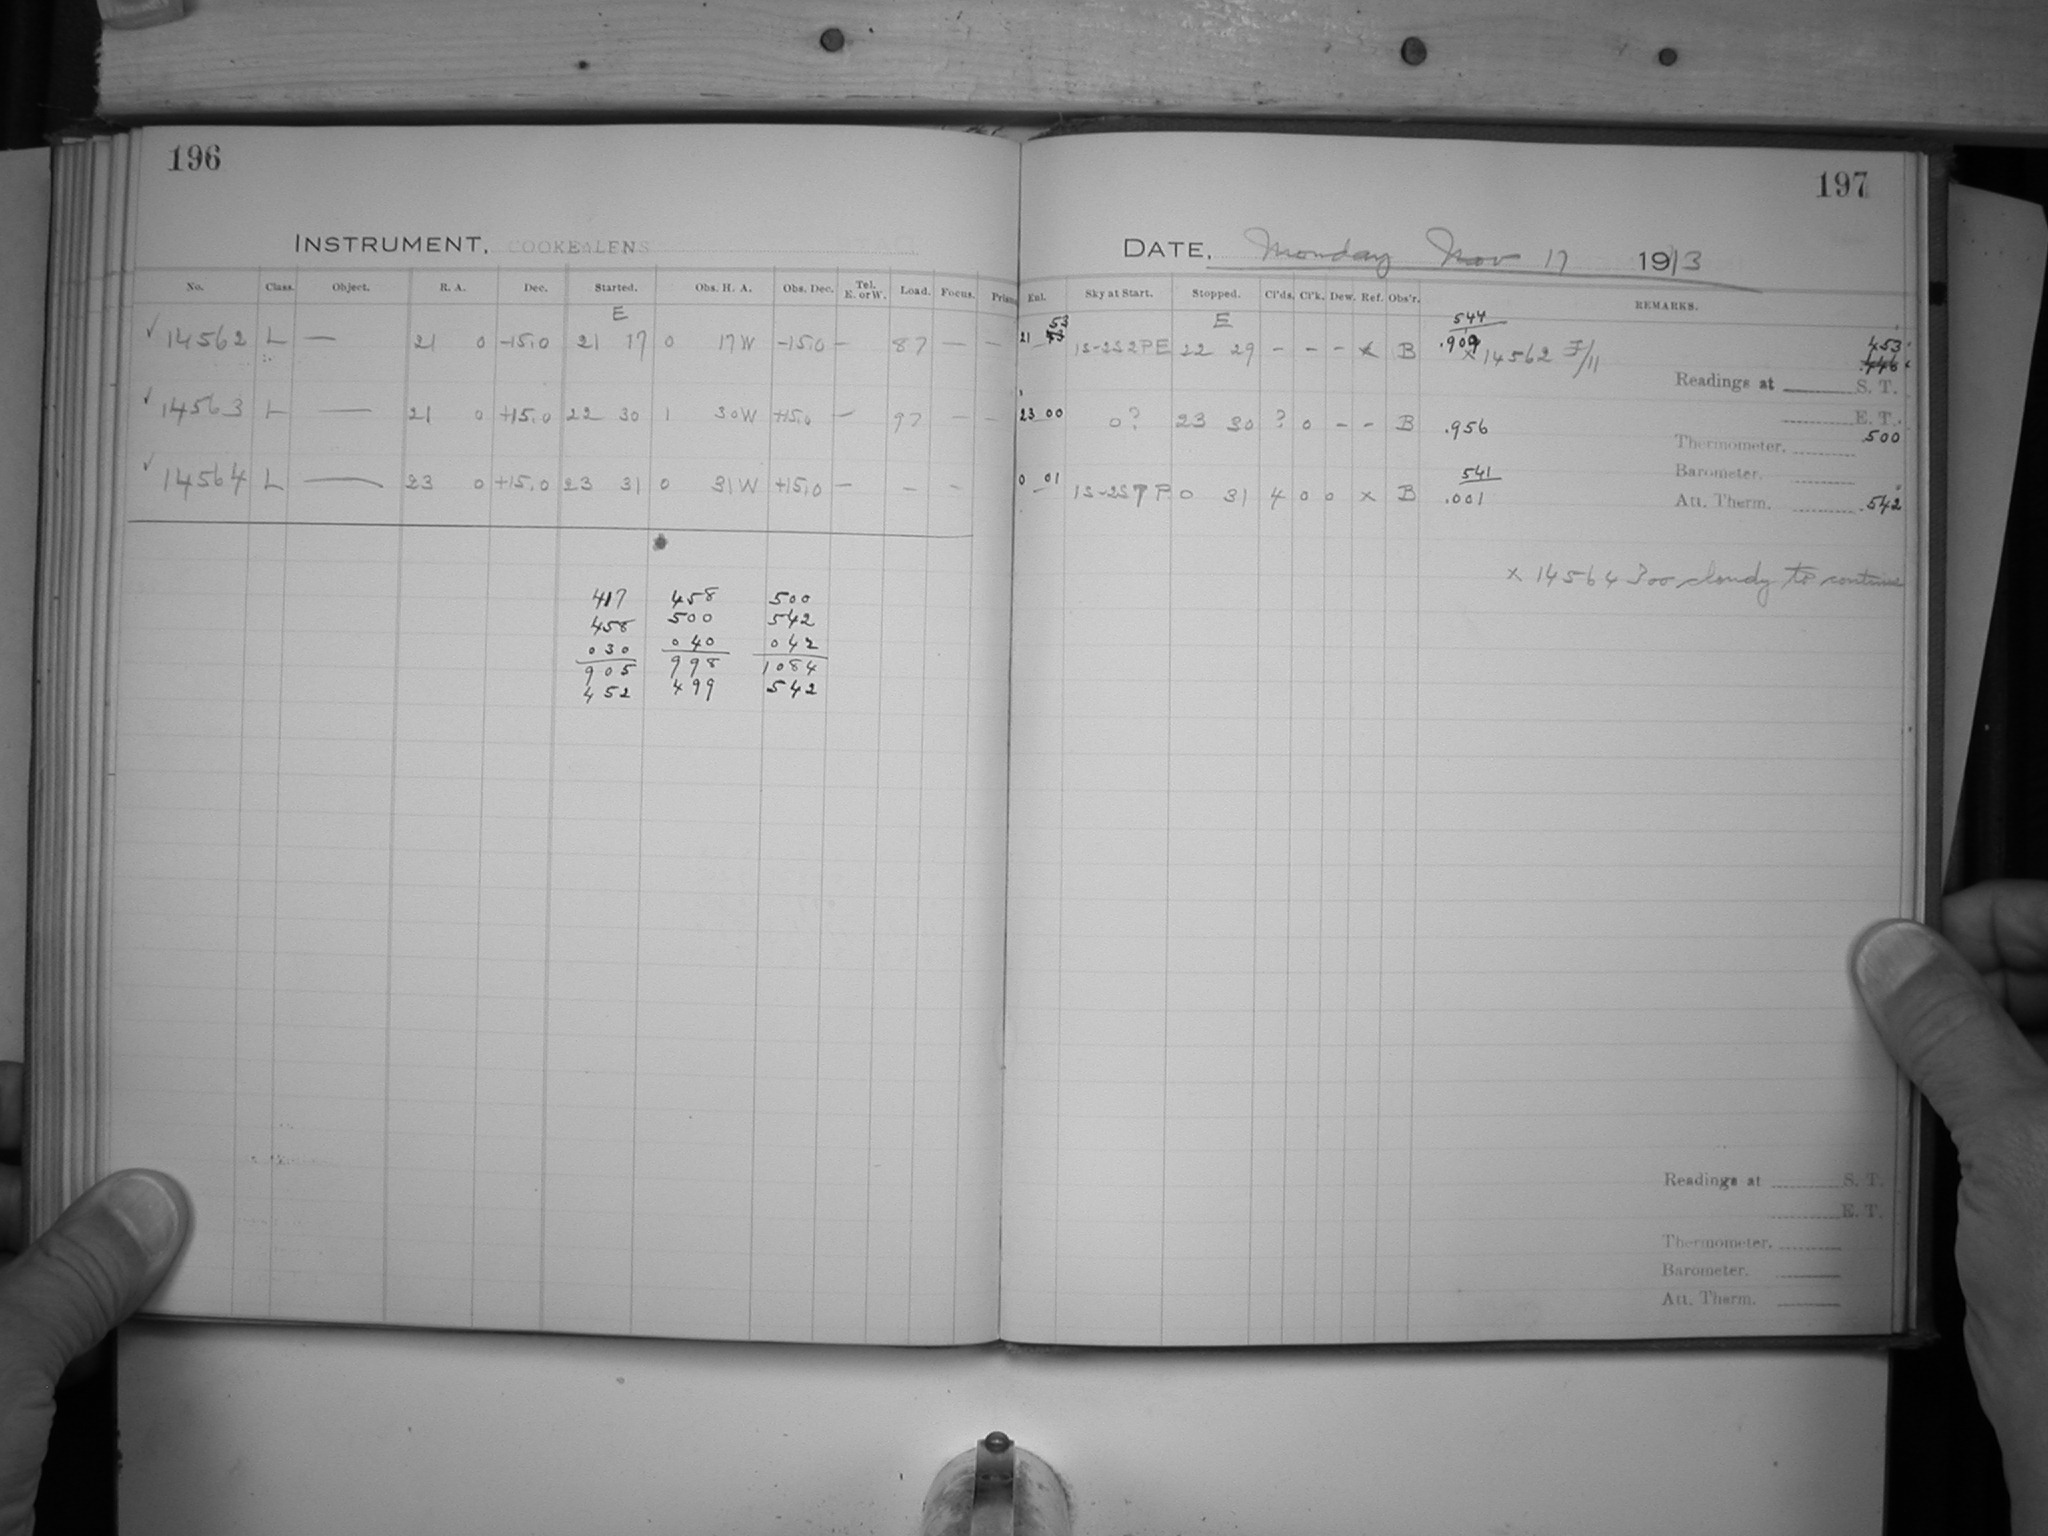 196
INSTRUMENT. COOKE LENS
No. Class. Object. R. A. Dec. Started. Obs. H. A. Obs. Dec. Tel. E. or W. Load. Focus. Prism
E
✓ 14562 L — 21 0 -15.0 21 17 0 17W -15.0 — 87 — —
✓ 14563 L — 21 0 +15.0 22 30 1 30W +15.0 — 97 — —
✓ 14564 L — 23 0 +15.0 23 31 0 31W +15.0 — — —
417 458 500
458 500 542
030 040 042
905 998 1084
452 499 542
197
DATE. Monday Nov 17 1913
Ent. Sky at Start. Stopped. Cl'ds. Cl'k. Dew. Ref. Obs'r. REMARKS.
53 E 544
21 1S-2S2PE 22 29 - - - x B .909 x 14562 F/11 453
Readings at S. T.
23 00 0? 23 30 ? 0 - - B .956 E. T.
Thermometer. 500
541
0 01 1S-2S P 0 31 4 0 0 x B .001
Barometer.
Att. Therm. .542
x 14564 Too cloudy to continue
Readings at S. T.
E. T.
Thermometer.
Barometer.
Att. Therm.